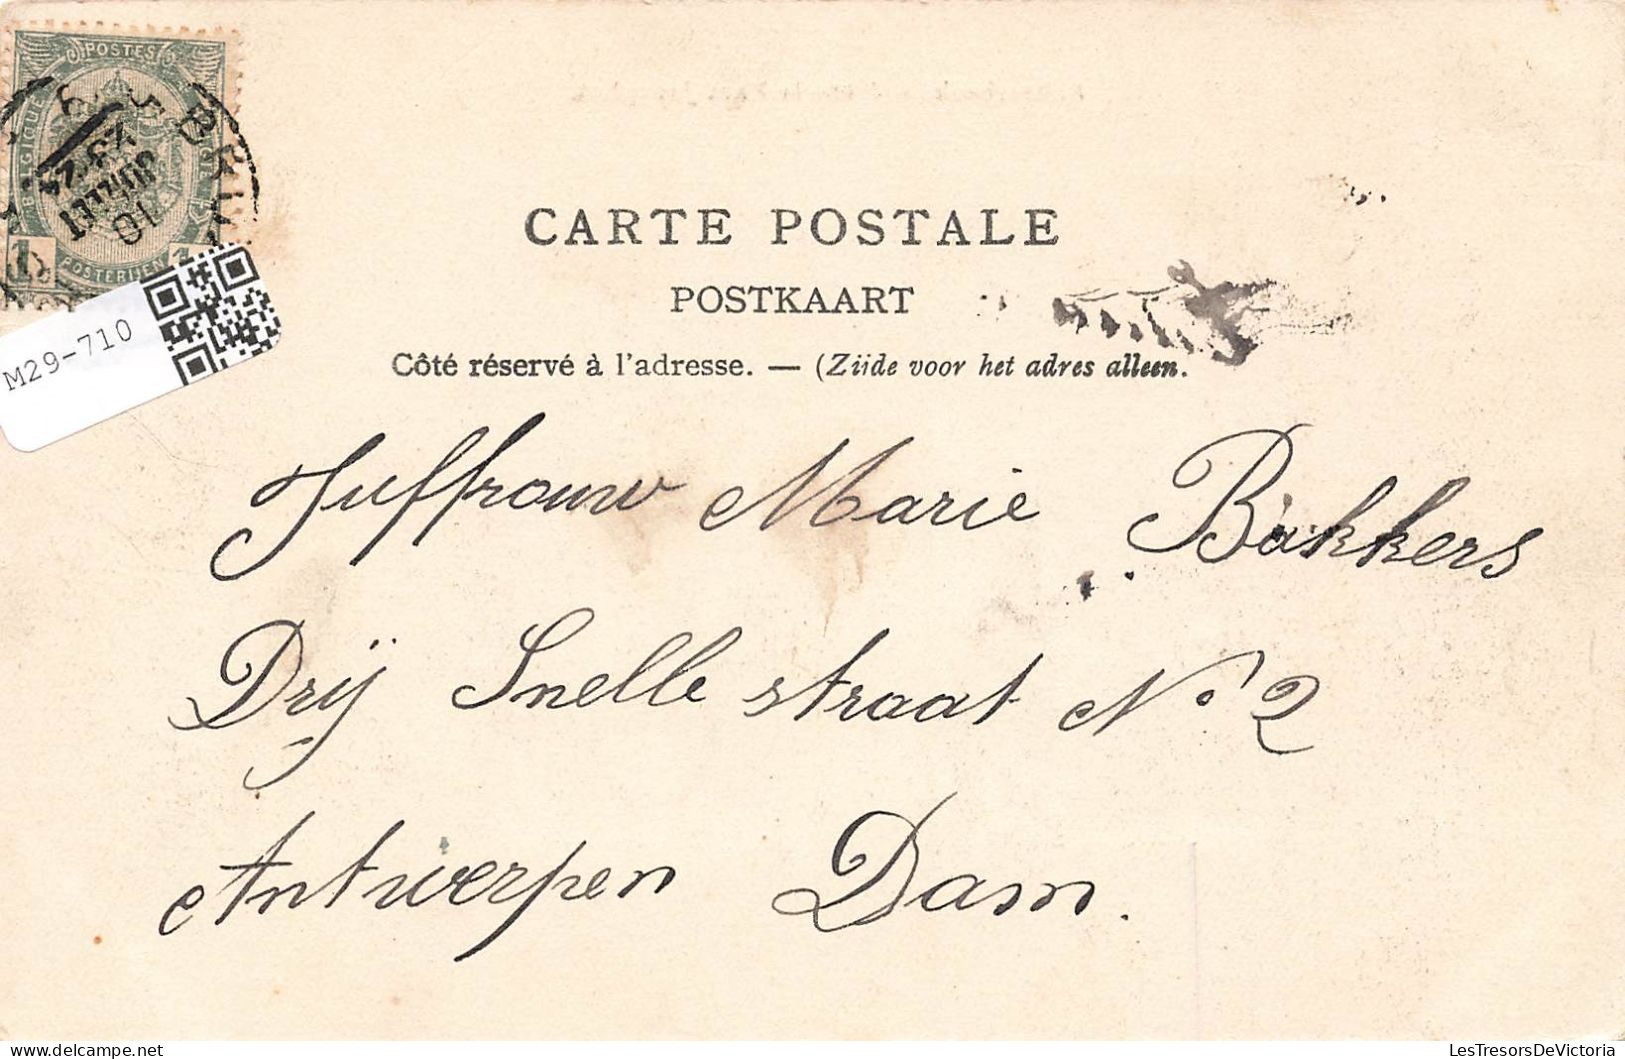 POSTES
BELGIQUE
POSTERIJEN
1
JUILLET
M29-710
CARTE POSTALE
POSTKAART
Côté réservé à l'adresse. — (Zijde voor het adres alleen.
Juffrouw Marie Bakkers
Drÿ Snelle straat N° 2
Antwerpen Dam.
LesTresorsDeVictoria
delcampe.net